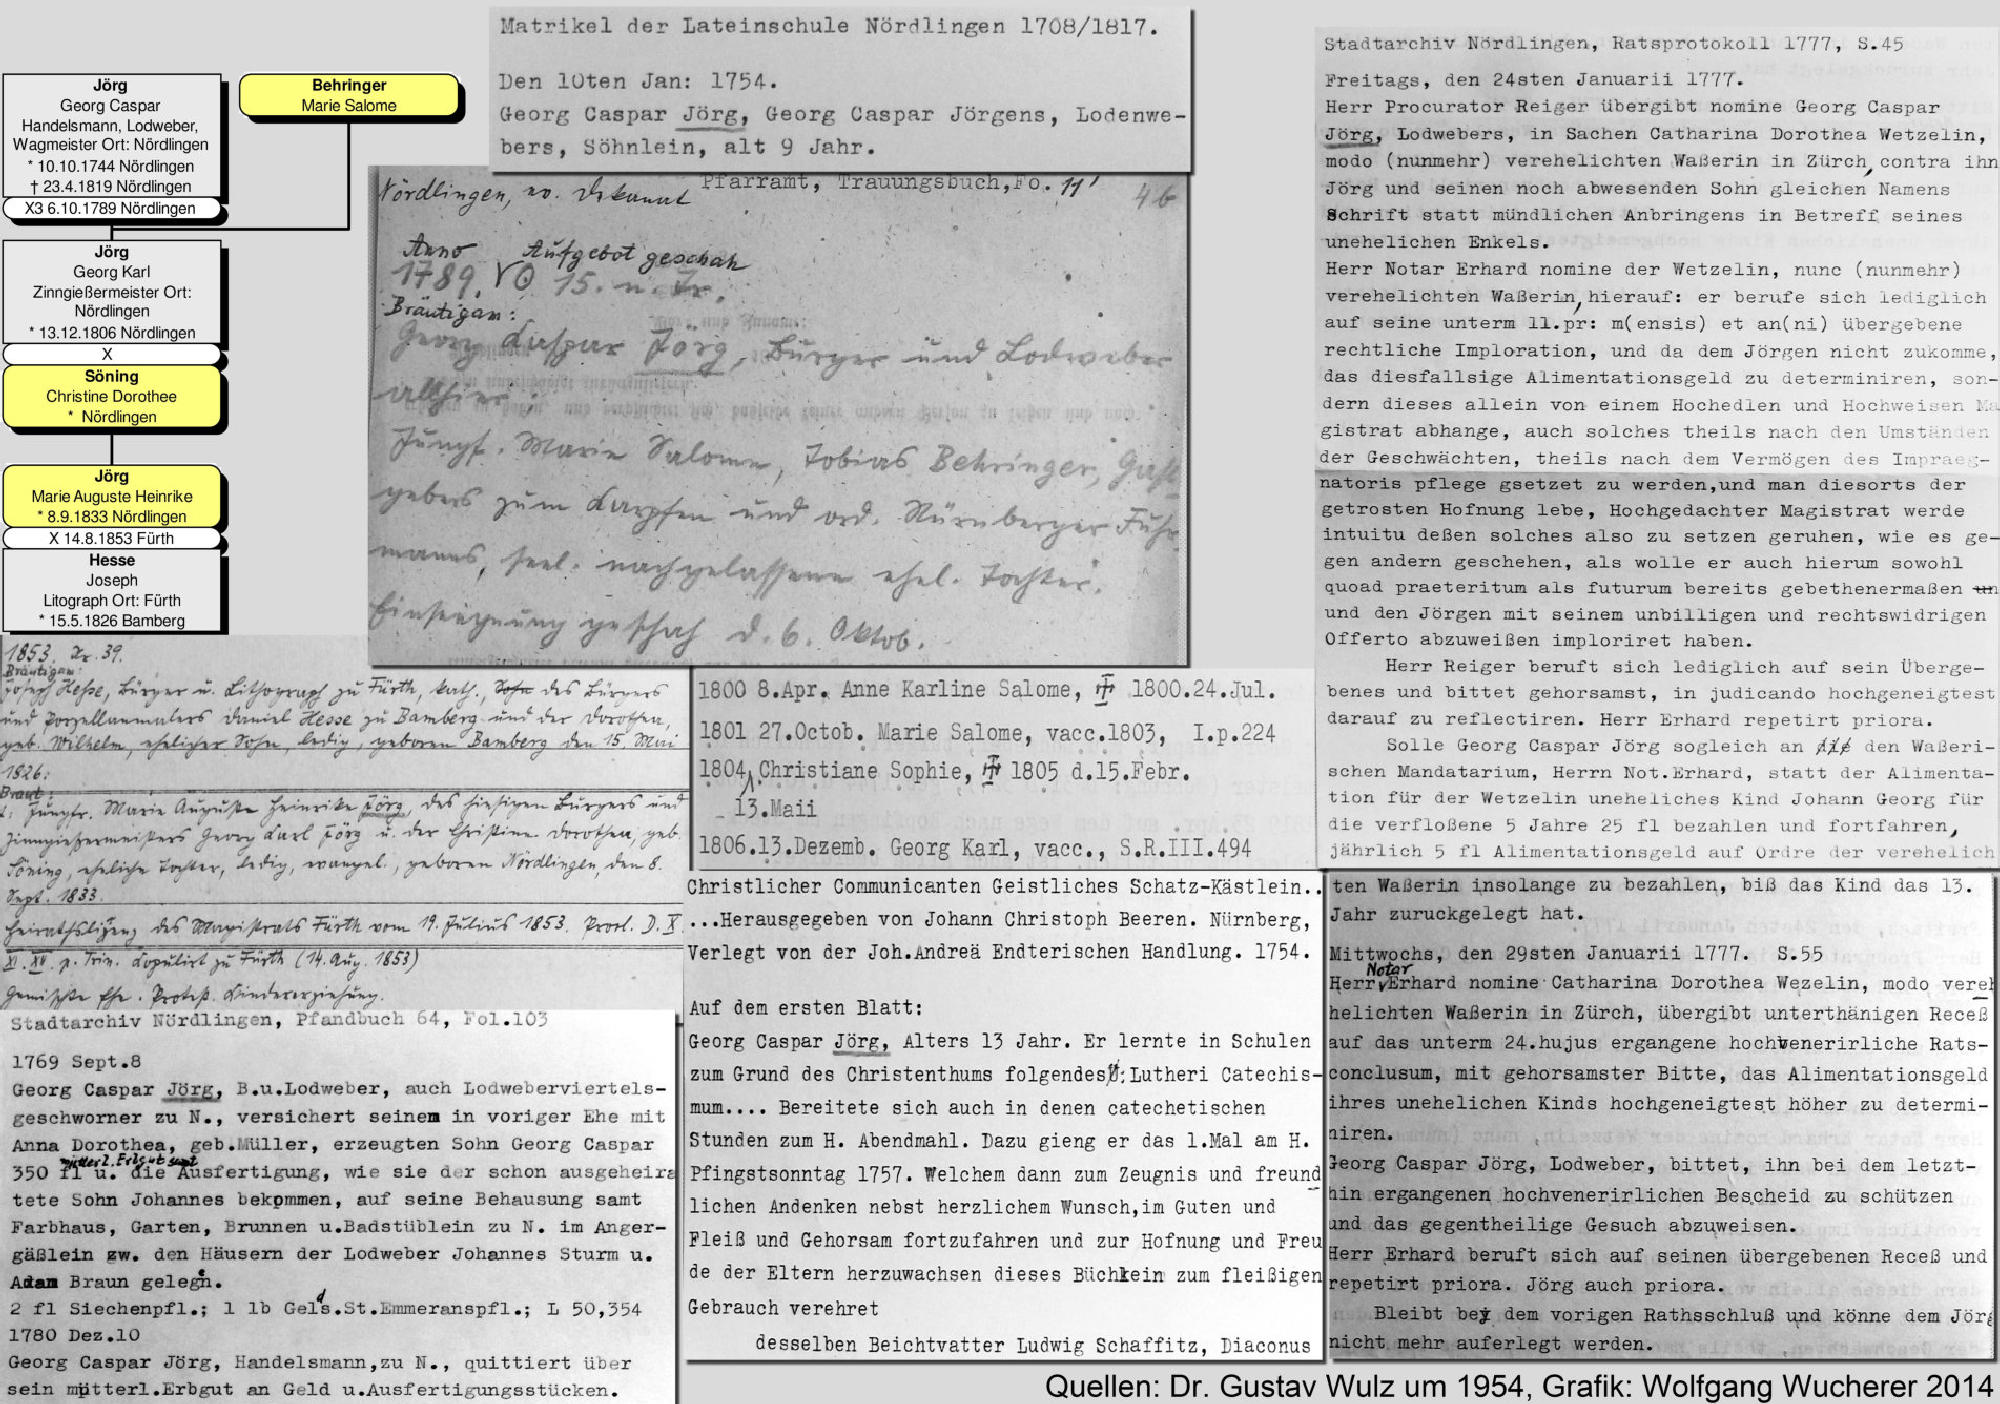 Jörg
Georg Caspar
Handelsmann, Lodweber,
Wagmeister Ort: Nördlingen
* 10.10.1744 Nördlingen
† 23.4.1819 Nördlingen
X3 6.10.1789 Nördlingen
Behringer
Marie Salome
Jörg
Georg Karl
Zinngießermeister Ort:
Nördlingen
* 13.12.1806 Nördlingen
X
Söning
Christine Dorothee
* Nördlingen
Jörg
Marie Auguste Heinrike
* 8.9.1833 Nördlingen
X 14.8.1853 Fürth
Hesse
Joseph
Litograph Ort: Fürth
* 15.5.1826 Bamberg
Matrikel der Lateinschule Nördlingen 1708/1817.
Den 10ten Jan: 1754.
Georg Caspar Jörg, Georg Caspar Jörgens, Lodenwe-
bers, Söhnlein, alt 9 Jahr.
Nördlingen, ev. Dekanat Pfarramt, Trauungsbuch,Fo. 11'
46
Anno Aufgebot geschah
1789. 15. n. Tr.
Bräutigam:
Georg Caspar Jörg, Bürger und Lodweber
allhier.
Jungf. Marie Salome, Tobias Behringer, Gast-
gebers zum Karpfen und ord. Nürnberger Fuhr-
manns, seel. nachgelassene ehel. Tochter.
Einsegnung geschah d. 6. Oktob.
1853. Nr. 39.
Bräutigam:
Joseph Hesse, Bürger u. Lithograph zu Fürth, kath., Sohn des Bürgers
und Porzellanmalers Daniel Hesse zu Bamberg und der Dorothea,
geb. Wilhelm, ehelicher Sohn, ledig, geboren Bamberg den 15. Mai
1826:
Braut:
Jungfr. Marie Auguste Heinrike Jörg, des hiesigen Bürgers und
Zinngießermeisters Georg Karl Jörg u. der Christine Dorothea, geb.
Söning, eheliche Tochter, ledig, evangel., geboren Nördlingen, den 8.
Sept. 1833.
Heirathslizenz des Magistrats Fürth vom 19. Julius 1853. Prod. D. X.
XI. XII. p. Trin. Copulirt zu Fürth (14. Aug. 1853)
Gemischte Ehe. Protest. Kindererziehung.
Stadtarchiv Nördlingen, Pfandbuch 64, Fol.103
1769 Sept.8
Georg Caspar Jörg, B.u.Lodweber, auch Lodweberviertels-
geschworner zu N., versichert seinem in voriger Ehe mit
Anna Dorothea, geb.Müller, erzeugten Sohn Georg Caspar
mütterl. Erbgut samt
350 fl u. die Ausfertigung, wie sie der schon ausgeheira
tete Sohn Johannes bekommen, auf seine Behausung samt
Farbhaus, Garten, Brunnen u.Badstüblein zu N. im Anger-
gäßlein zw. den Häusern der Lodweber Johannes Sturm u.
Adam Braun gelegen.
2 fl Siechenpfl.; 1 lb Gelds.St.Emmeranspfl.; L 50,354
1780 Dez.10
Georg Caspar Jörg, Handelsmann,zu N., quittiert über
sein mütterl.Erbgut an Geld u.Ausfertigungsstücken.
1800 8.Apr. Anne Karline Salome, 1800.24.Jul.
1801 27.Octob. Marie Salome, vacc.1803, I.p.224
1804 Christiane Sophie, 1805 d.15.Febr.
13.Maii
1806.13.Dezemb. Georg Karl, vacc., S.R.III.494
Christlicher Communicanten Geistliches Schatz-Kästlein..
...Herausgegeben von Johann Christoph Beeren. Nürnberg,
Verlegt von der Joh.Andreä Endterischen Handlung. 1754.
Auf dem ersten Blatt:
Georg Caspar Jörg, Alters 13 Jahr. Er lernte in Schulen
zum Grund des Christenthums folgendes: Lutheri Catechis-
mum.... Bereitete sich auch in denen catechetischen
Stunden zum H. Abendmahl. Dazu gieng er das 1.Mal am H.
Pfingstsonntag 1757. Welchem dann zum Zeugnis und freund
lichen Andenken nebst herzlichem Wunsch,im Guten und
Fleiß und Gehorsam fortzufahren und zur Hofnung und Freu
de der Eltern herzuwachsen dieses Büchlein zum fleißigen
Gebrauch verehret
desselben Beichtvatter Ludwig Schaffitz, Diaconus
Stadtarchiv Nördlingen, Ratsprotokoll 1777, S.45
Freitags, den 24sten Januarii 1777.
Herr Procurator Reiger übergibt nomine Georg Caspar
Jörg, Lodwebers, in Sachen Catharina Dorothea Wetzelin,
modo (nunmehr) verehelichten Waßerin in Zürch, contra ihn
Jörg und seinen noch abwesenden Sohn gleichen Namens
Schrift statt mündlichen Anbringens in Betreff seines
unehelichen Enkels.
Herr Notar Erhard nomine der Wetzelin, nunc (nunmehr)
verehelichten Waßerin, hierauf: er berufe sich lediglich
auf seine unterm 11.pr: m(ensis) et an(ni) übergebene
rechtliche Imploration, und da dem Jörgen nicht zukomme,
das diesfallsige Alimentationsgeld zu determiniren, son-
dern dieses allein von einem Hochedlen und Hochweisen Ma
gistrat abhange, auch solches theils nach den Umständen
der Geschwächten, theils nach dem Vermögen des Impraeg-
natoris pflege gsetzet zu werden,und man diesorts der
getrosten Hofnung lebe, Hochgedachter Magistrat werde
intuitu deßen solches also zu setzen geruhen, wie es ge-
gen andern geschehen, als wolle er auch hierum sowohl
quoad praeteritum als futurum bereits gebethenermaßen un
und den Jörgen mit seinem unbilligen und rechtswidrigen
Offerto abzuweißen imploriret haben.
Herr Reiger beruft sich lediglich auf sein Überge-
benes und bittet gehorsamst, in judicando hochgeneigtest
darauf zu reflectiren. Herr Erhard repetirt priora.
Solle Georg Caspar Jörg sogleich an den Waßeri-
schen Mandatarium, Herrn Not.Erhard, statt der Alimenta-
tion für der Wetzelin uneheliches Kind Johann Georg für
die verfloßene 5 Jahre 25 fl bezahlen und fortfahren,
jährlich 5 fl Alimentationsgeld auf Ordre der verehelich
ten Waßerin insolange zu bezahlen, biß das Kind das 13.
Jahr zuruckgelegt hat.
Mittwochs, den 29sten Januarii 1777. S.55
Notar
Herr Erhard nomine Catharina Dorothea Wezelin, modo vereh
helichten Waßerin in Zürch, übergibt unterthänigen Receß
auf das unterm 24.hujus ergangene hochvenerirliche Rats-
conclusum, mit gehorsamster Bitte, das Alimentationsgeld
ihres unehelichen Kinds hochgeneigtest höher zu determi-
niren.
Georg Caspar Jörg, Lodweber, bittet, ihn bei dem letzt-
hin ergangenen hochvenerirlichen Bescheid zu schützen
und das gegentheilige Gesuch abzuweisen.
Herr Erhard beruft sich auf seinen übergebenen Receß und
repetirt priora. Jörg auch priora.
Bleibt bey dem vorigen Rathsschluß und könne dem Jörg
nicht mehr auferlegt werden.
Quellen: Dr. Gustav Wulz um 1954, Grafik: Wolfgang Wucherer 2014